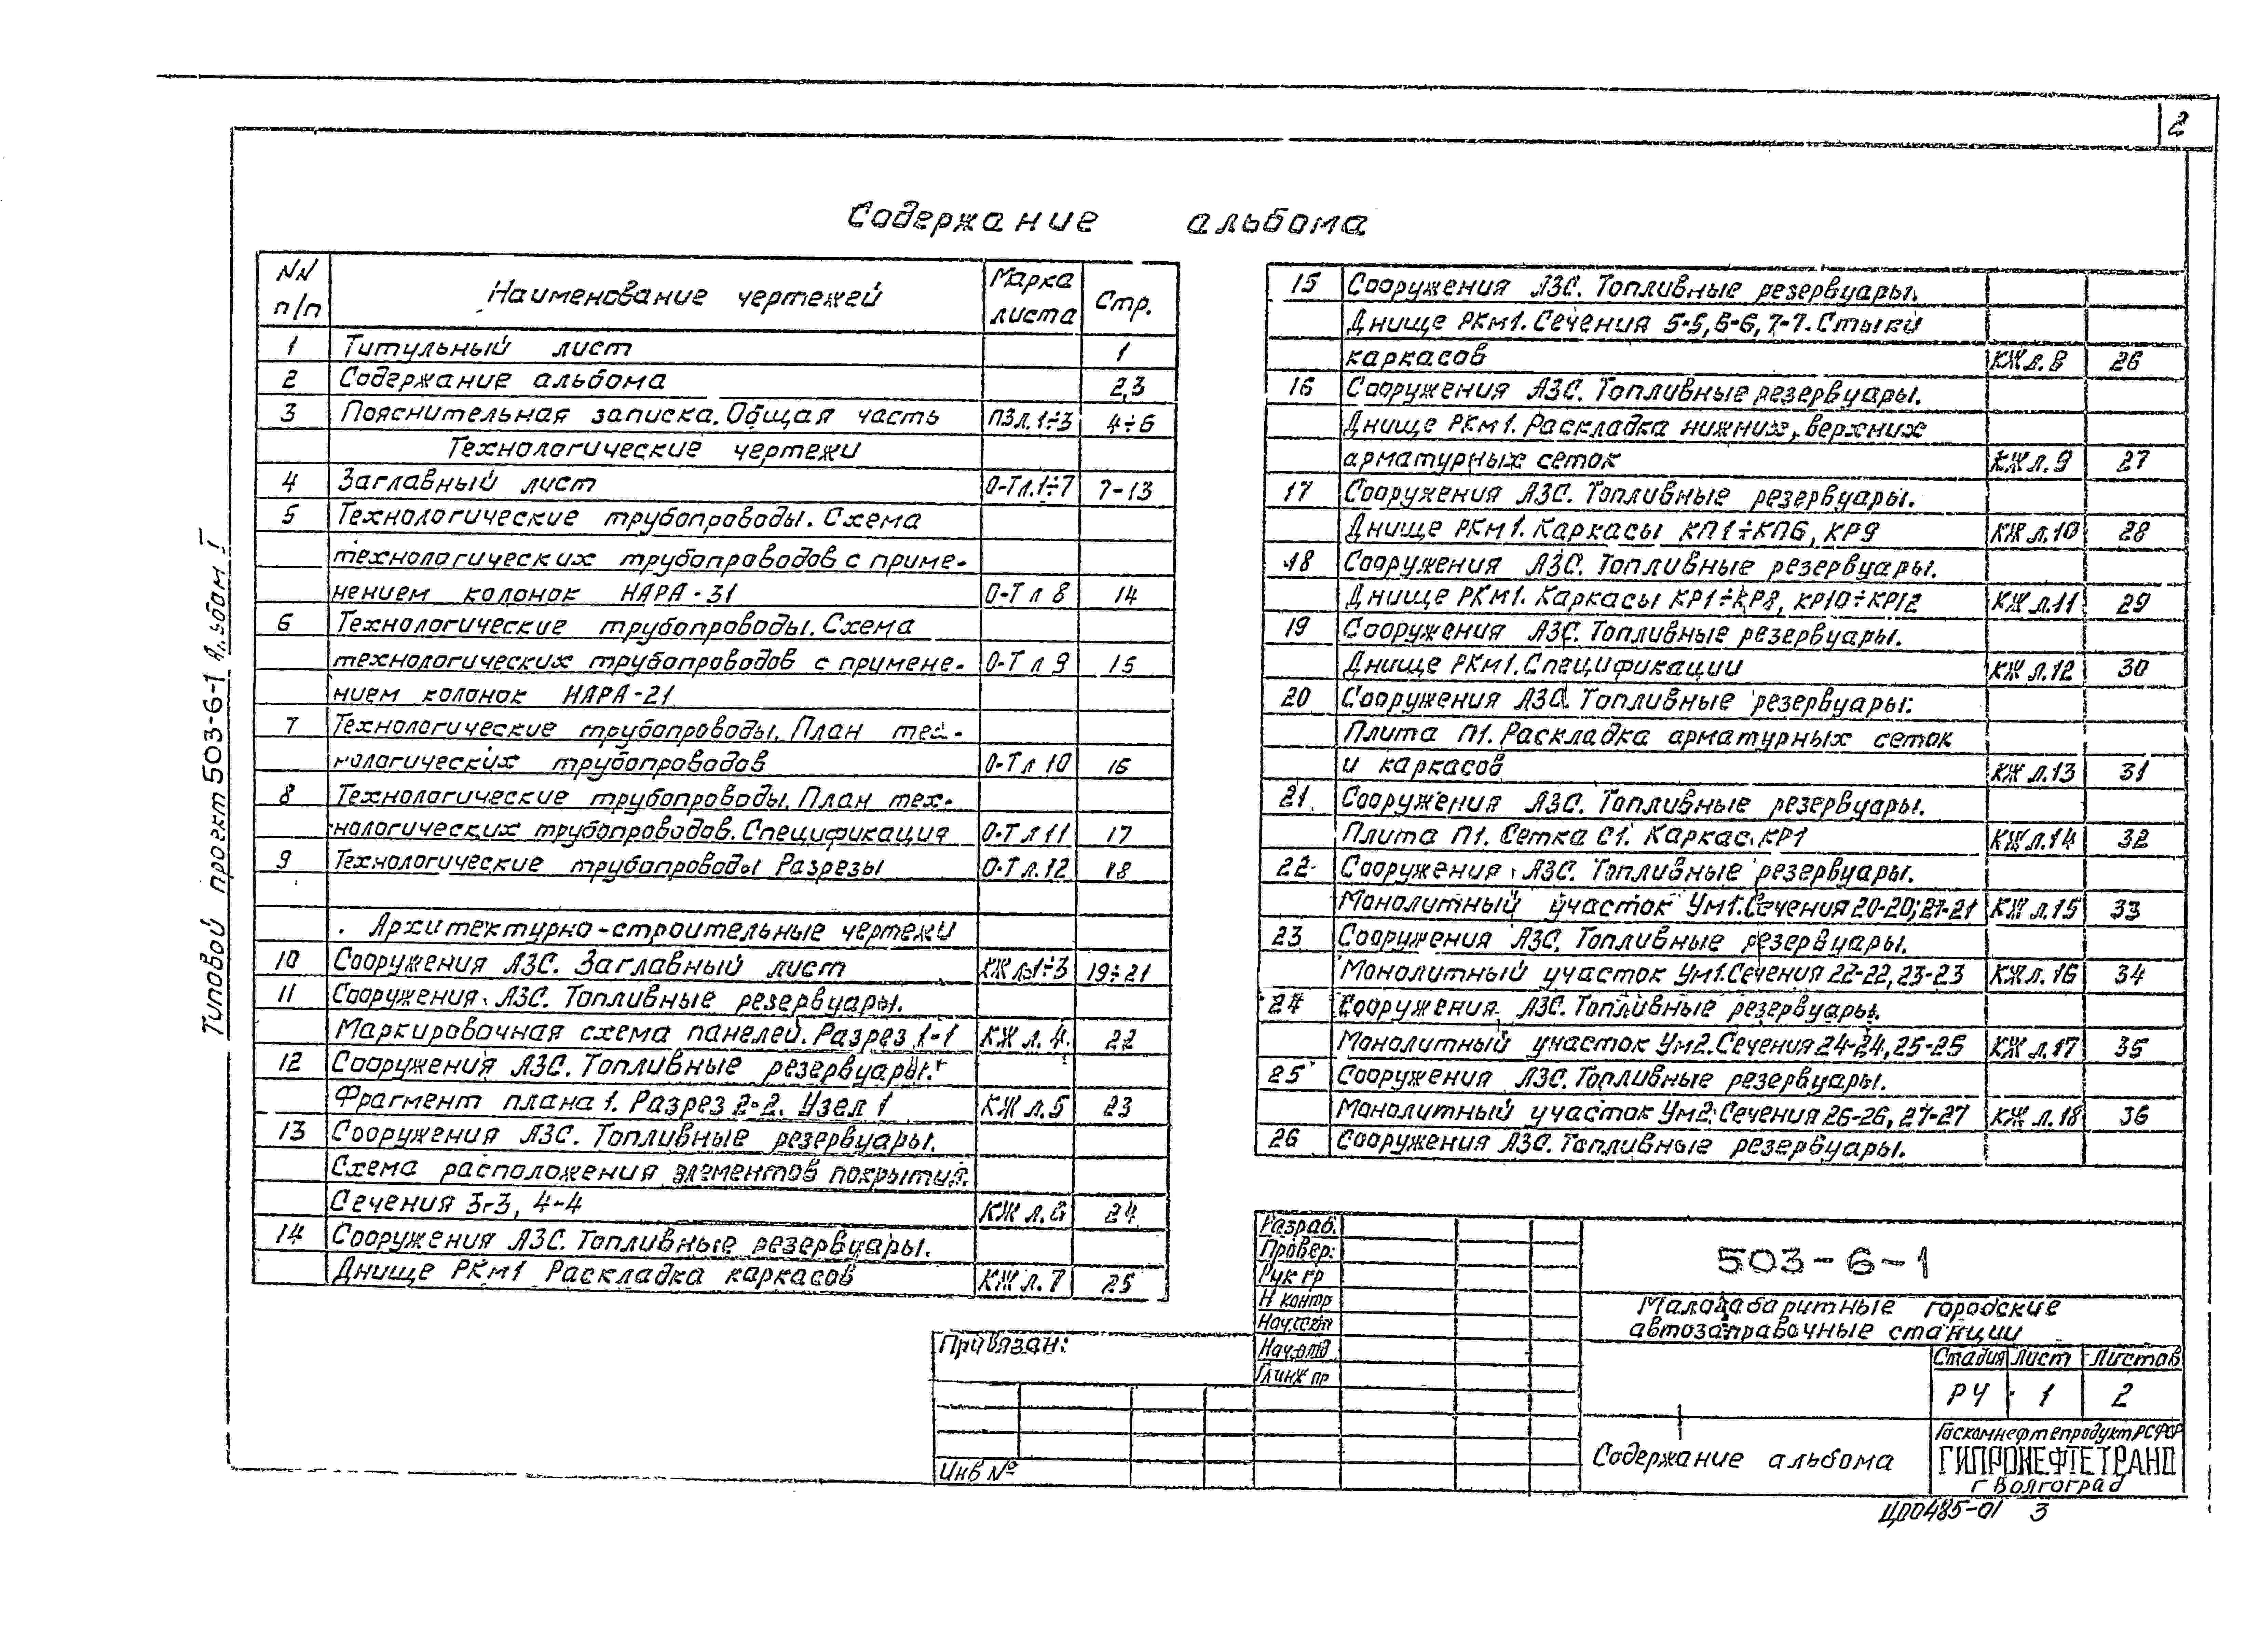 2
Содержание альбома
NN п/п Наименование чертежей Марка листа Стр.
1 Титульный лист 1
2 Содержание альбома 2,3
3 Пояснительная записка. Общая часть ПЗ л. 1÷3 4÷6
Технологические чертежи
4 Заглавный лист О-Т л. 1÷7 7-13
5 Технологические трубопроводы. Схема
технологических трубопроводов с приме-
нением колонок НАРА-31 О-Т л 8 14
6 Технологические трубопроводы. Схема
технологических трубопроводов с примене- О-Т л 9 15
нием колонок НАРА-21
7 Технологические трубопроводы. План тех-
нологических трубопроводов О-Т л 10 16
8 Технологические трубопроводы. План тех-
нологических трубопроводов. Спецификация О-Т л 11 17
9 Технологические трубопроводы Разрезы О-Т л. 12 18
Архитектурно-строительные чертежи
10 Сооружения АЗС. Заглавный лист КЖ л. 1÷3 19÷21
11 Сооружения АЗС. Топливные резервуары.
Маркировочная схема панелей. Разрез 1-1 КЖ л. 4 22
12 Сооружения АЗС. Топливные резервуары.
Фрагмент плана 1. Разрез 2-2. Узел 1 КЖ л. 5 23
13 Сооружения АЗС. Топливные резервуары.
Схема расположения элементов покрытия.
Сечения 3-3, 4-4 КЖ л. 6 24
14 Сооружения АЗС. Топливные резервуары.
Днище РКм1 Раскладка каркасов КЖ л. 7 25
15 Сооружения АЗС. Топливные резервуары.
Днище РКм1. Сечения 5-5, 6-6, 7-7. Стыки
каркасов КЖ л. 8 26
16 Сооружения АЗС. Топливные резервуары.
Днище РКм1. Раскладка нижних, верхних
арматурных сеток КЖ л. 9 27
17 Сооружения АЗС. Топливные резервуары.
Днище РКм1. Каркасы КП1÷КП6, КР9 КЖ л. 10 28
18 Сооружения АЗС. Топливные резервуары.
Днище РКм1. Каркасы КР1÷КР8, КР10÷КР12 КЖ л. 11 29
19 Сооружения АЗС. Топливные резервуары.
Днище РКм1. Спецификации КЖ л. 12 30
20 Сооружения АЗС. Топливные резервуары.
Плита П1. Раскладка арматурных сеток
и каркасов КЖ л. 13 31
21 Сооружения АЗС. Топливные резервуары.
Плита П1. Сетка С1. Каркас КР1 КЖ л. 14 32
22 Сооружения АЗС. Топливные резервуары.
Монолитный участок Ум1. Сечения 20-20; 21-21 КЖ л. 15 33
23 Сооружения АЗС. Топливные резервуары.
Монолитный участок Ум1. Сечения 22-22, 23-23 КЖ л. 16 34
24 Сооружения АЗС. Топливные резервуары.
Монолитный участок Ум2. Сечения 24-24, 25-25 КЖ л. 17 35
25 Сооружения АЗС. Топливные резервуары.
Монолитный участок Ум2. Сечения 26-26, 27-27 КЖ л. 18 36
26 Сооружения АЗС. Топливные резервуары.
Типовой проект 503-6-1 Альбом I
Привязан:
Инв №
Разраб.
Провер.
Рук гр
Н контр
Нач.сект
Нач.отд
Гл инж пр
503-6-1
Малогабаритные городские
автозаправочные станции
Стадия Лист Листов
РЧ 1 2
Содержание альбома
Госкомнефтепродукт РСФСР
ГИПРОНЕФТЕТРАНС
г Волгоград
ЦП0485-01 3